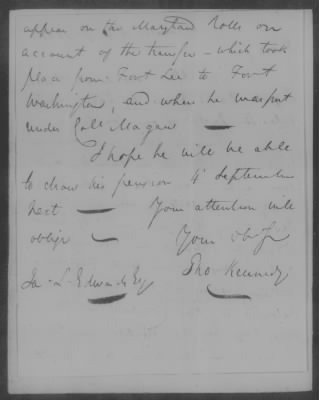 appear on the Maryland Rolls on
account of the transfer - which took
place from Fort Lee to Fort
Washington, and when he was put
under Coll. Magaw
I hope he will be able
to draw his pension 4th September
next Your attention will
oblige Your Ob Sr
Ja. L. Edwards Esq Tho Kennedy